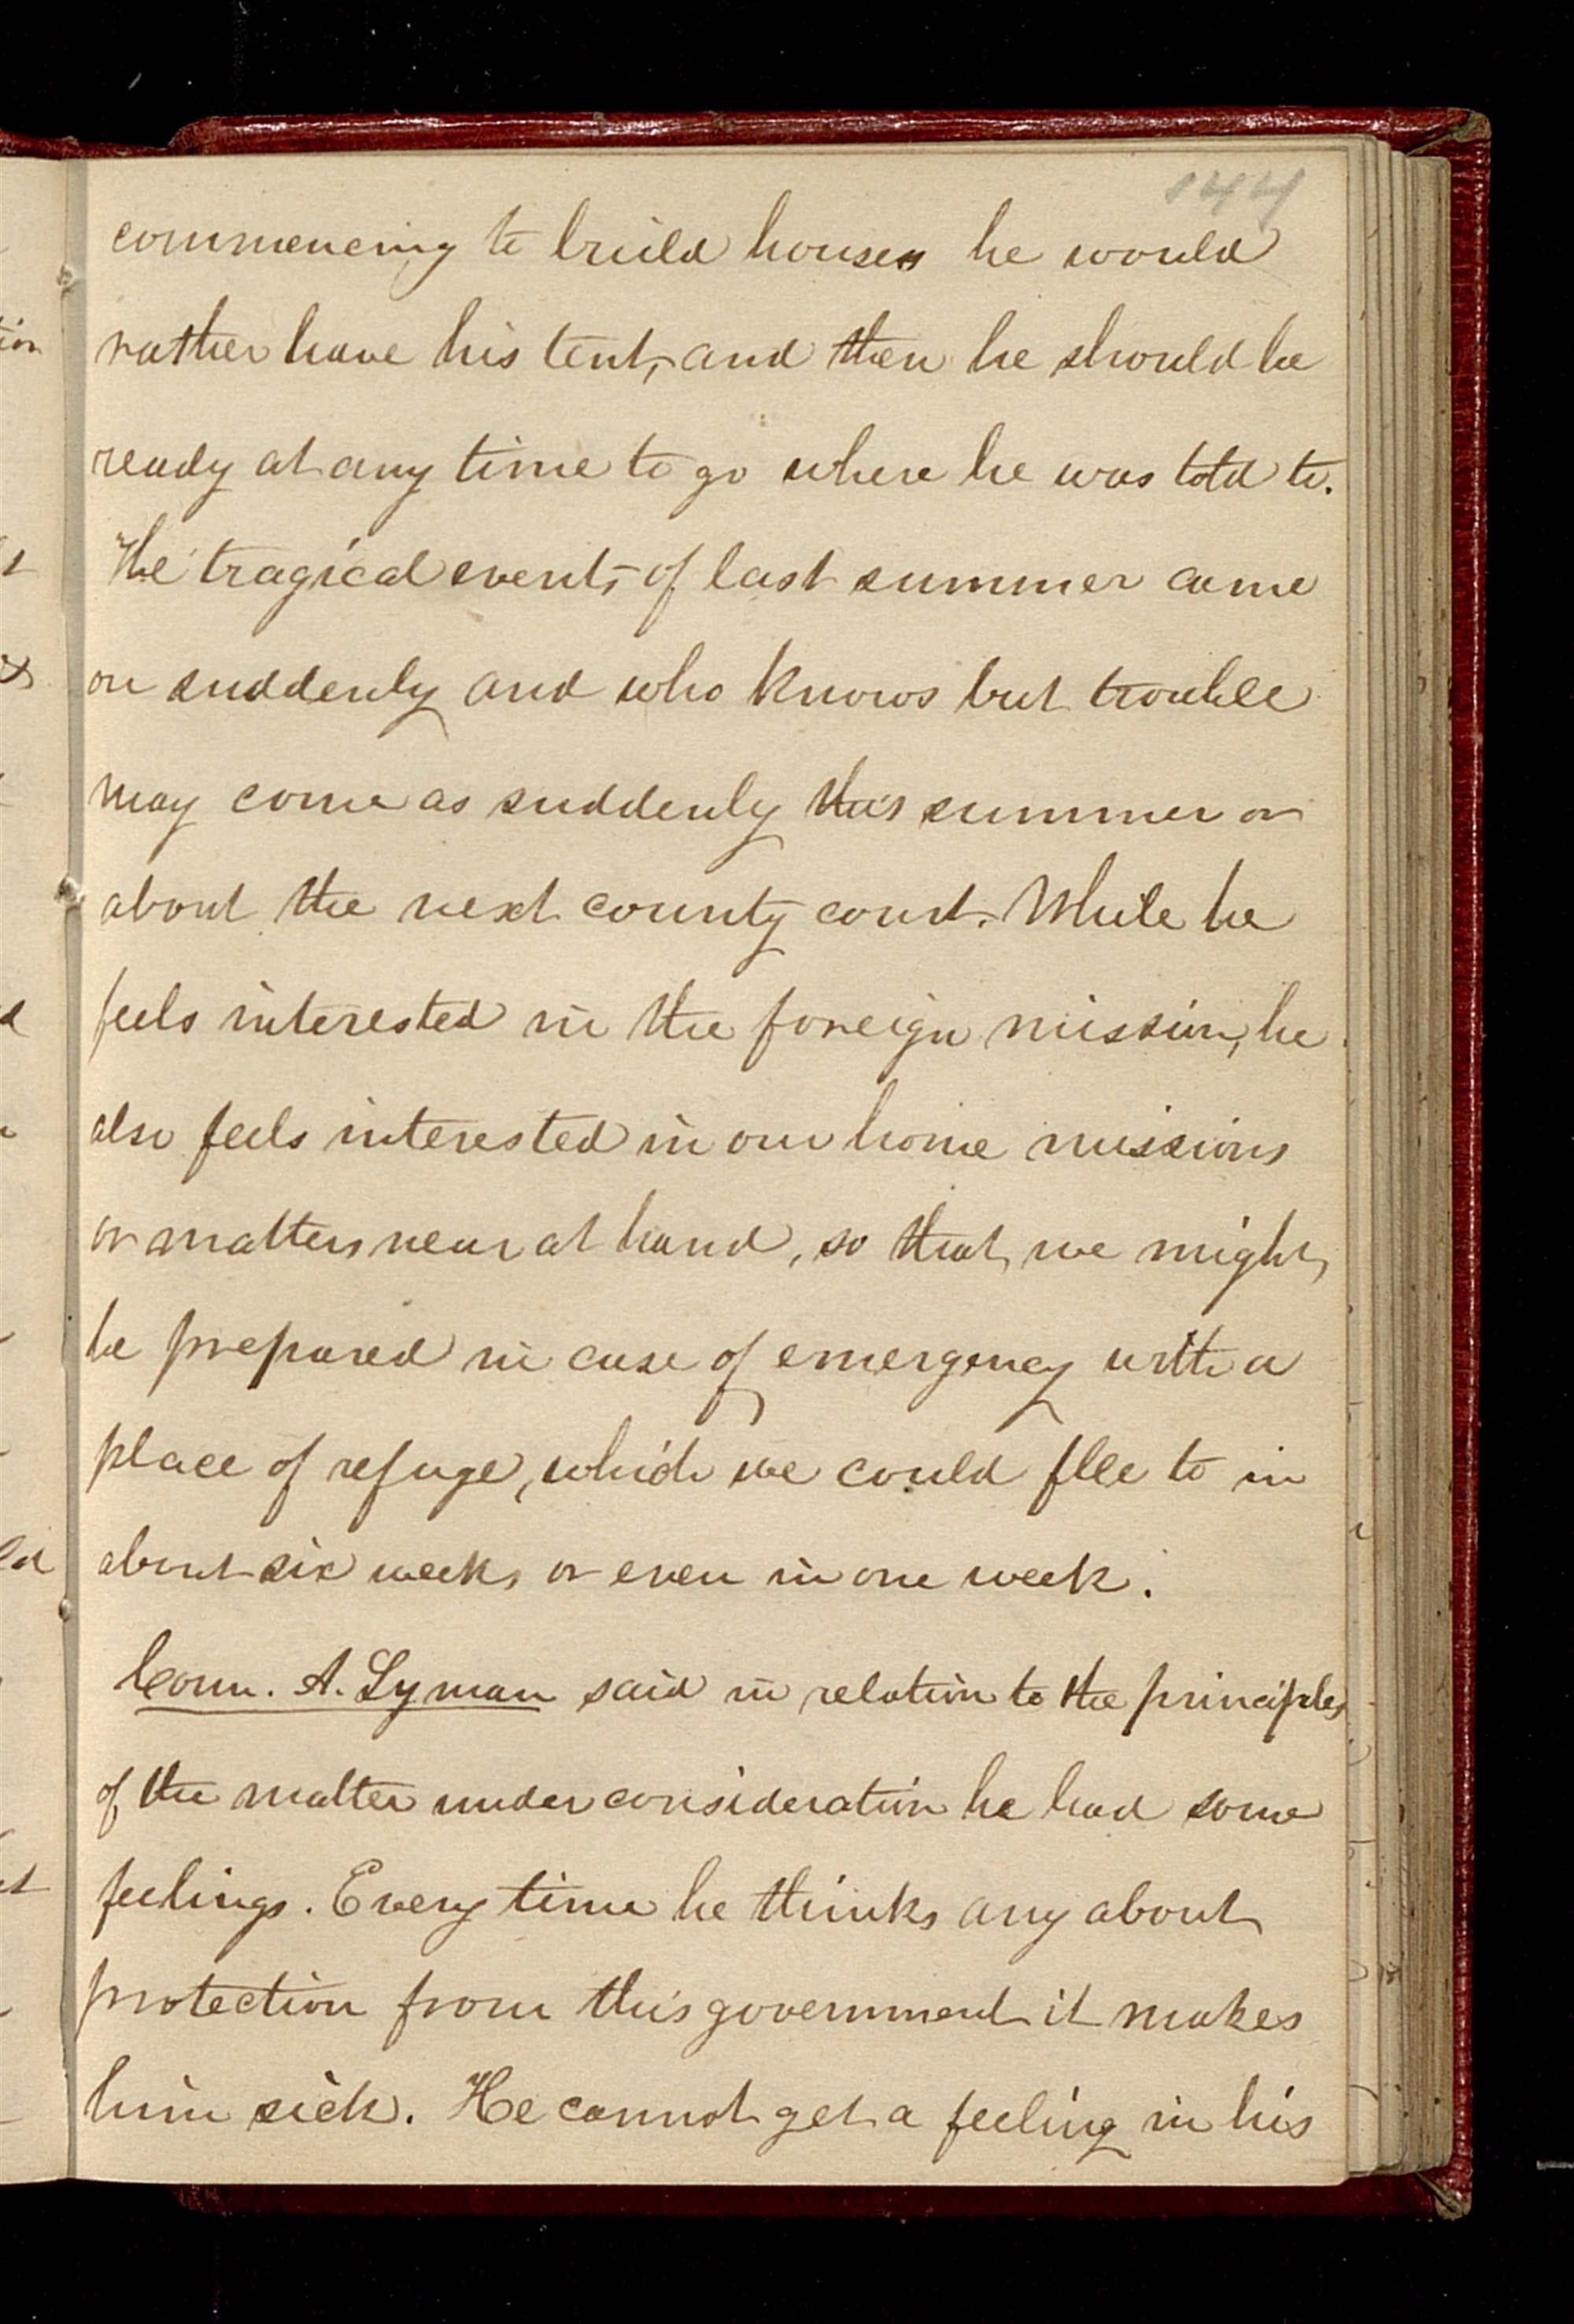 144
commencing to build houses he would
rather have his tent, and then he should be
ready at any time to go where he was told to.
The tragical events of last summer came
on suddenly and who knows but trouble
may come as suddenly this summer or
about the next county court. While he
feels interested in the foreign mission, he
also feels interested in our home missions
or matters near at hand, so that we might
be prepared in case of emergency with a
place of refuge, which we could flee to in
about six weeks or even in one week.
Coun. A. Lyman said in relation to the principles
of the matter under consideration he had some
feelings. Every time he thinks any about
protection from this government it makes
him sick. He cannot get a feeling in his